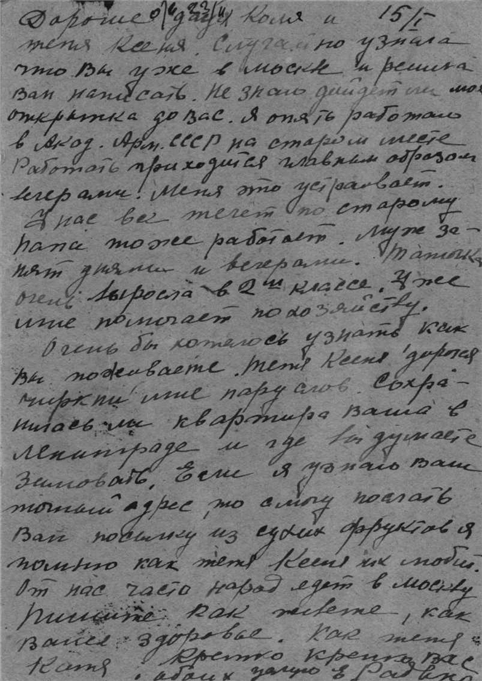 Дорогие дядя Коля и 15/I
тетя Ксеня. Случайно узнала
что Вы уже в Москве и решила
Вам написать. Не знаю дойдет ли моя
открытка до Вас. Я опять работаю
в Акад. Арм. СССР на старом месте
Работать приходится главным образом
вечерами. Меня это устраивает.
У нас все течет по старому
папа тоже работает. Муж за-
нят днями и вечерами.
очень выросла в 2ом классе. Уже
мне помогает по хозяйству.
Очень бы хотелось узнать как
Вы поживаете. Тетя Ксеня дорогая
мне пару слов. Сохра-
нилась ли квартира Ваша в
Ленинграде и где Вы думаете
зимовать. Если я узнаю Ваш
точный адрес, то смогу послать
Вам посылку из сухих фруктов я
помню как тетя Ксеня их любит.
От нас часто народ едет в Москву
Пишите как живете, как
Ваше здоровье. Как тетя
Катя. Крепко крепко Вас
обоих целую